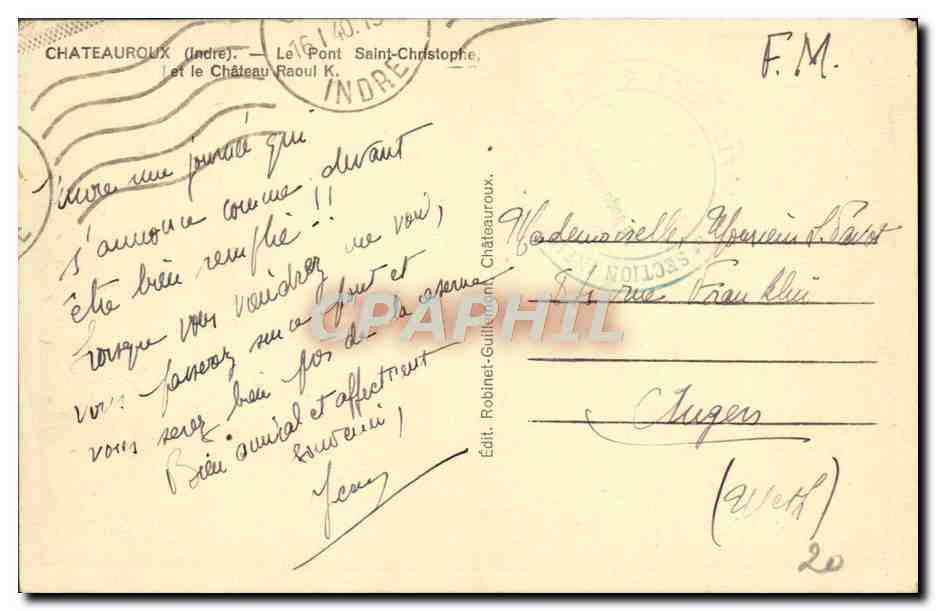 CHATEAUROUX (Indre). — Le Pont Saint-Christophe,
et le Château Raoul K.
16-1 40
INDRE
F.M.
une journée qui
s'annonce comme devant
être bien remplie !!
Lorsque vous viendrez me voir,
vous passerez sur ce pont et
vous serez bien près de la caserne
Bien amical et affectueux
souvenir !
Jean
Édit. Robinet-Guillemont, Châteauroux.
SECTION
Mademoiselle, Monsieur
rue Franklin
Angers
(M et L)
20
CPAPHIL